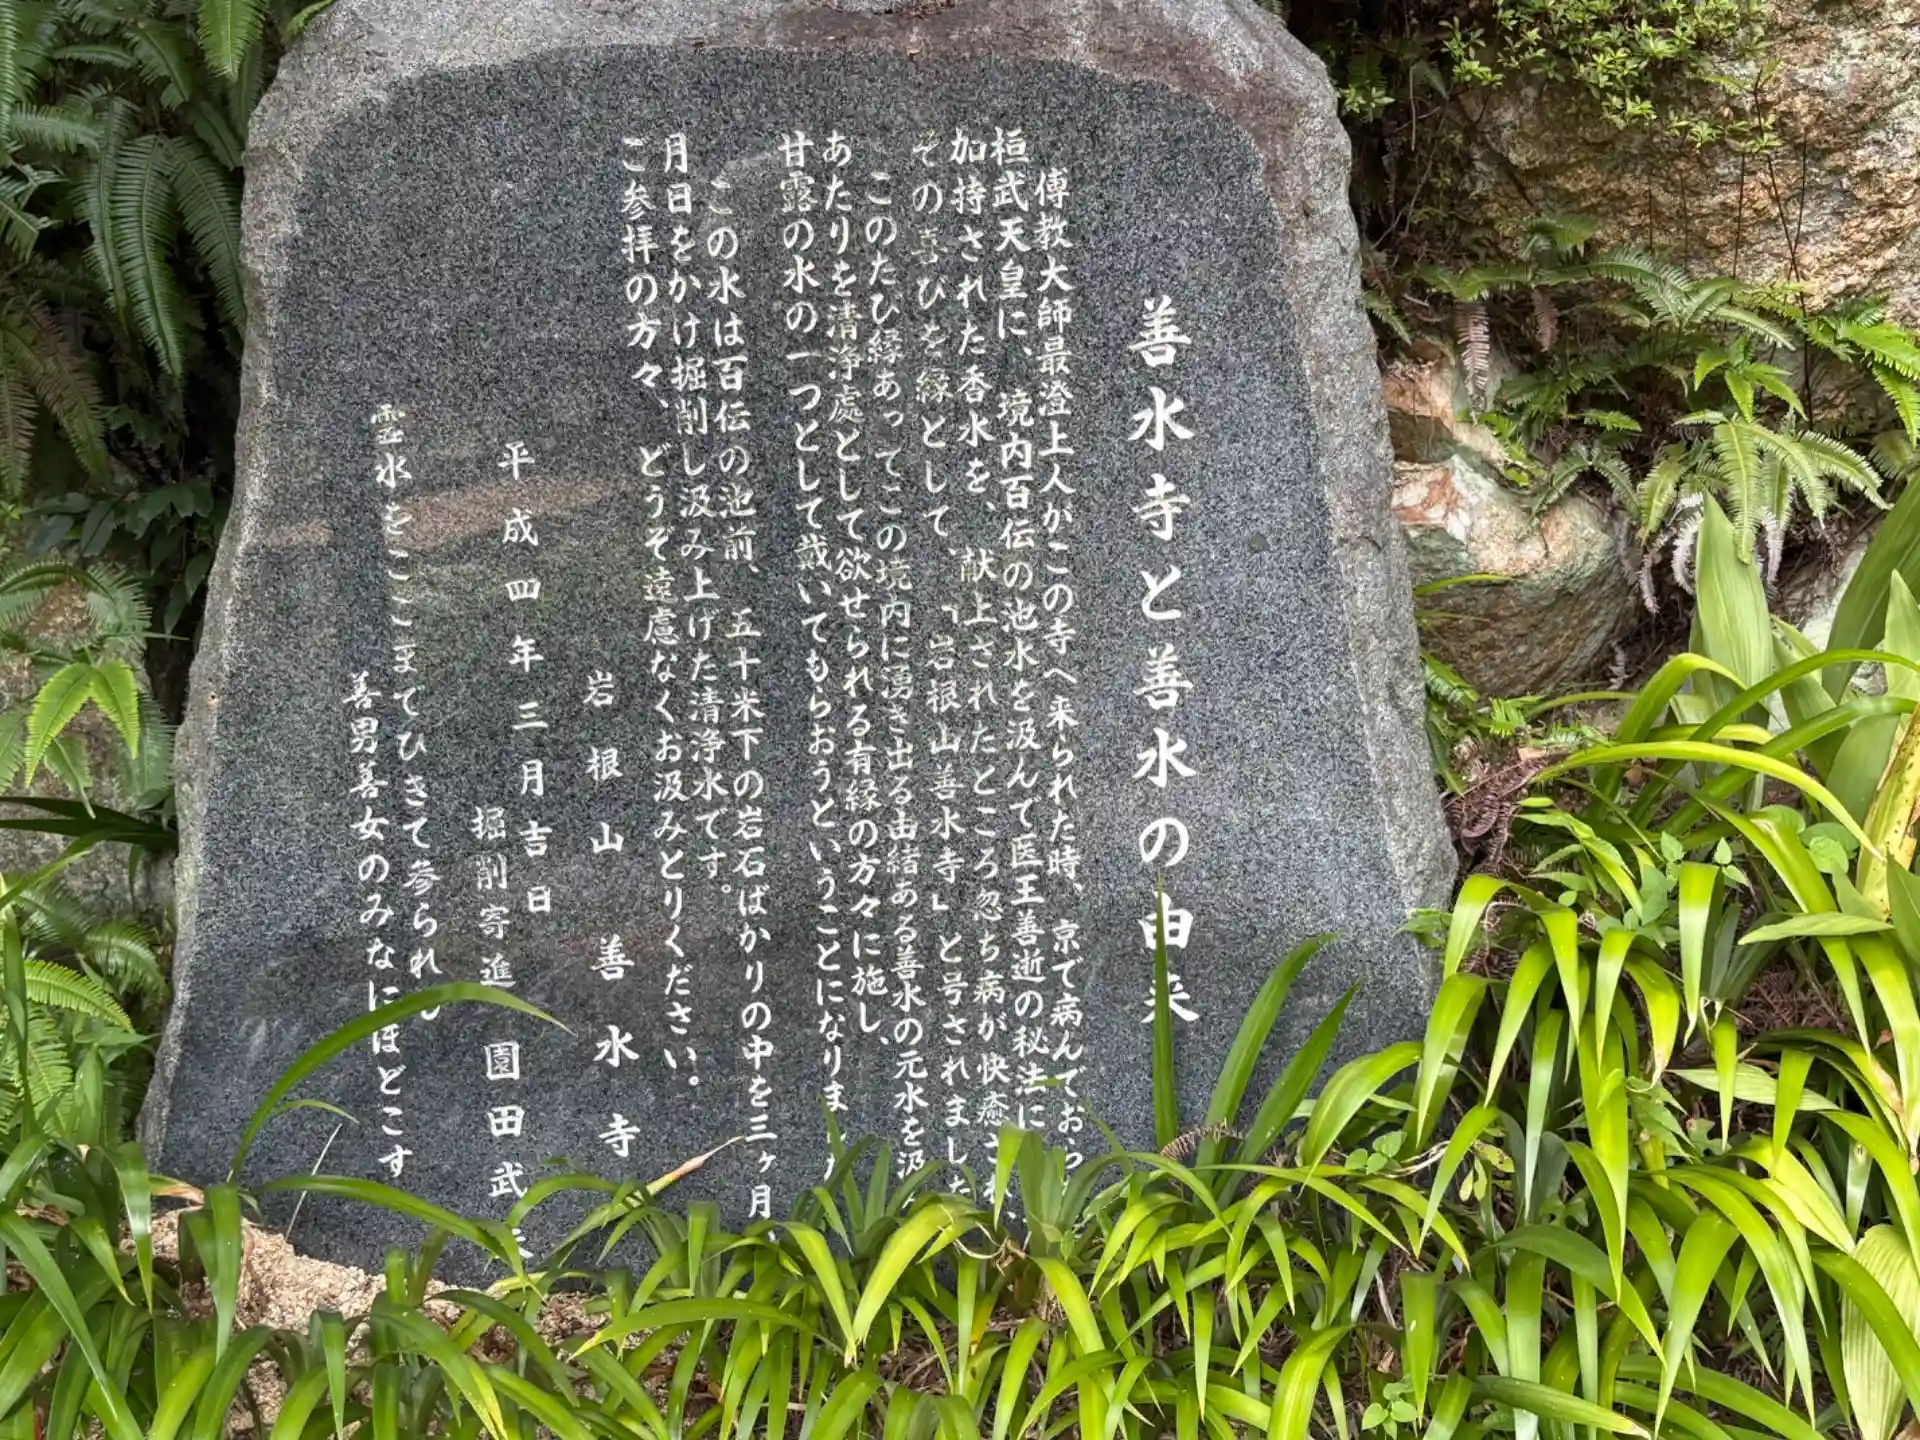 善水寺と善水の由来
傅教大師最澄上人がこの寺へ来られた時、京で病んでおら
桓武天皇に、境内百伝の池水を汲んで医王善逝の秘法に
加持された香水を、献上されたところ忽ち病が快癒され、
その喜びを縁として、「岩根山善水寺」と号されました
このたび縁あってこの境内に湧き出る由緒ある善水の元水を汲
あたりを清浄處として欲せられる有縁の方々に施し、
甘露の水の一つとして戴いてもらおうということになりました
この水は百伝の池前、五十米下の岩石ばかりの中を三ヶ月
月日をかけ掘削し汲み上げた清浄水です。
ご参拝の方々、どうぞ遠慮なくお汲みとりください。
岩根山善水寺
平成四年三月吉日
掘削寄進 園田武
霊水をここまでひきて参られし
善男善女のみなにほどこす